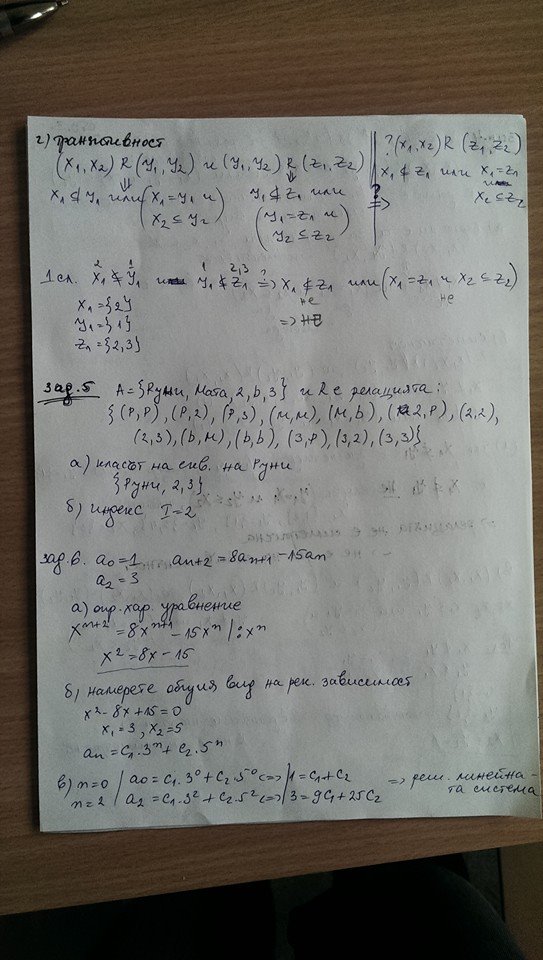 г) транзитивност
(x₁, x₂) R (y₁, y₂) и (y₁, y₂) R (z₁, z₂) ?(x₁, x₂) R (z₁, z₂)
⇓ ⇓
x₁ ⊄ y₁ или (x₁ = y₁ и x₂ ⊆ y₂) y₁ ⊄ z₁ или (y₁ = z₁ и y₂ ⊆ z₂) ?⇒ x₁ ⊄ z₁ или x₁ = z₁ и x₂ ⊆ z₂
2 1 1 2,3
1сл. x₁ ⊄ y₁ и y₁ ⊄ z₁ ?⇒ x₁ ⊄ z₁ или (x₁ = z₁ и x₂ ⊆ z₂)
не не
x₁ = {2}
y₁ = {1} ⇒ НЕ
z₁ = {2,3}
зад.5 A = {Руни, Мата, 2, b, 3} и R е релацията:
{(Р,Р), (Р,2), (Р,3), (М,М), (М,b), (2,Р), (2,2),
(2,3), (b,М), (b,b), (3,Р), (3,2), (3,3)}
а) класът на екв. на Руни
{Руни, 2, 3}
б) индекс I = 2
зад.6. a₀ = 1 aₙ₊₂ = 8aₙ₊₁ - 15aₙ
a₂ = 3
а) опр. хар. уравнение
xⁿ⁺² = 8xⁿ⁺¹ - 15xⁿ | : xⁿ
x² = 8x - 15
б) намерете общия вид на рек. зависимост
x² - 8x + 15 = 0
x₁ = 3, x₂ = 5
aₙ = c₁.3ⁿ + c₂.5ⁿ
в) n=0 | a₀ = c₁.3⁰ + c₂.5⁰ <=> | 1 = c₁ + c₂ => реш. линейна-
n=2 | a₂ = c₁.3² + c₂.5² <=> | 3 = 9c₁ + 25c₂ та система